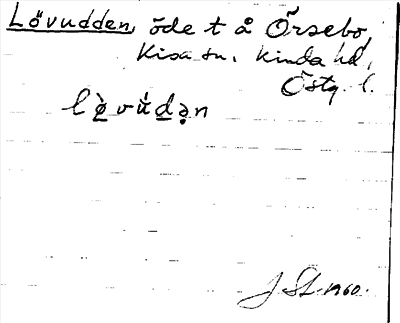 Lövudden, öde t å Örsebo,
Kisa sn, Kinda hd,
Östg. l.
lö̀vúdən
J St. 1960.